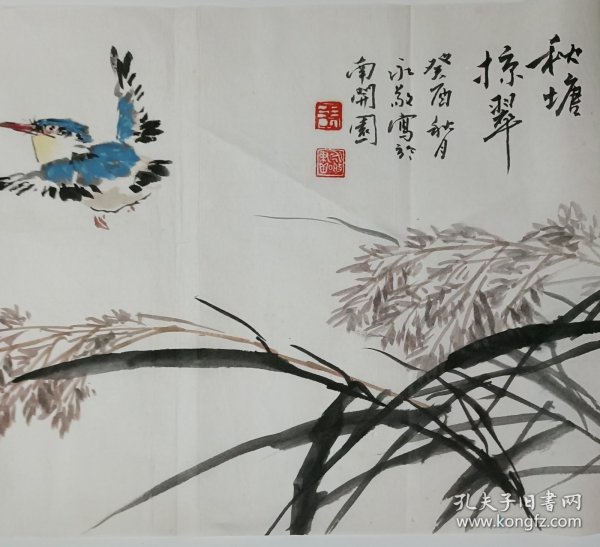 秋塘
掠翠
癸酉秋月
永敬寫於
南開園
孔夫子旧書网
www.kongfz.com